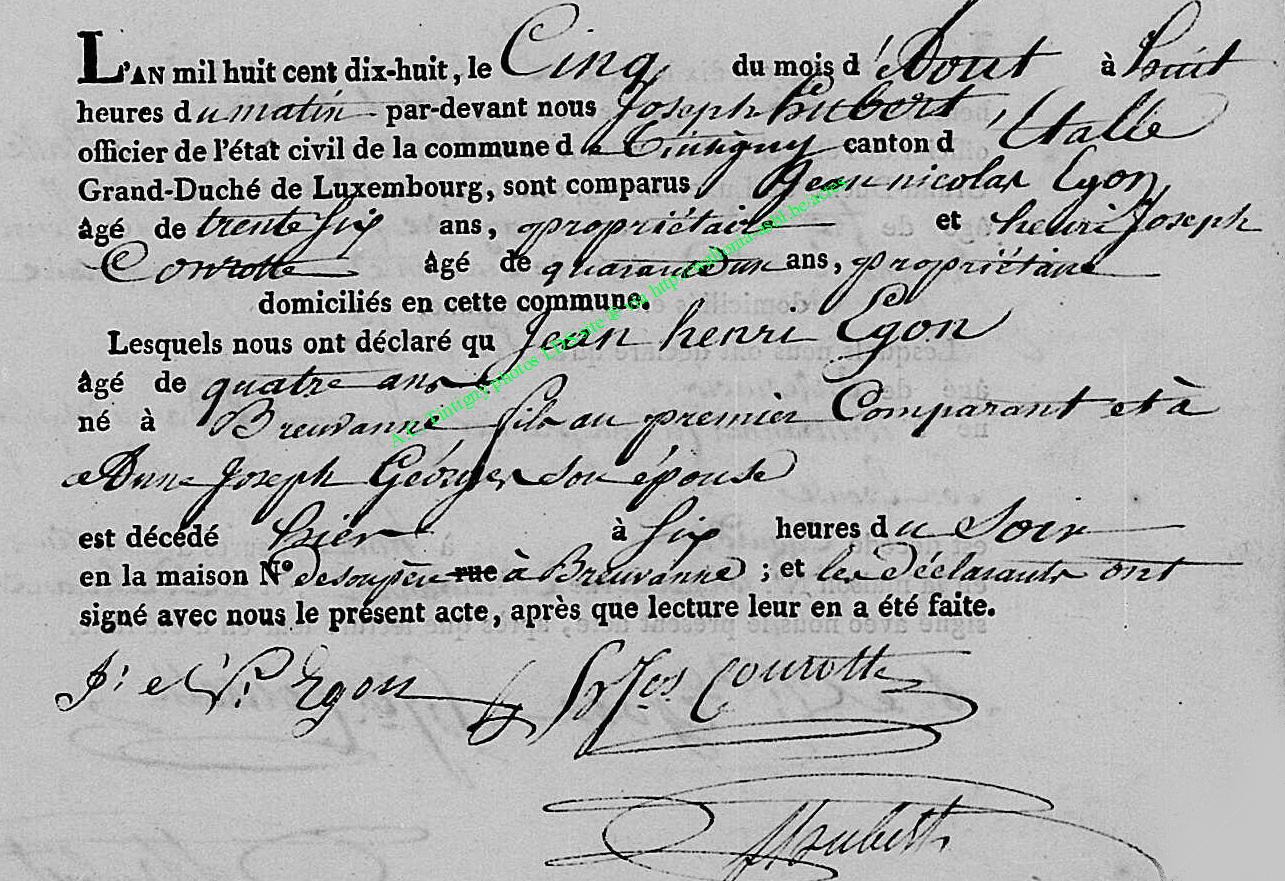 L'AN mil huit cent dix-huit, le Cinq du mois d'Aout à huit
heures du matin par-devant nous Joseph hubert,
officier de l'état civil de la commune de Tintigny canton d'Etalle
Grand-Duché de Luxembourg, sont comparus, Jean nicolas Egon,
âgé de trente six ans, propriétaire et henri Joseph
Conrotte âgé de quarante un ans, propriétaire
domiciliés en cette commune.
Lesquels nous ont déclaré qu Jean henri Egon
âgé de quatre ans
né à Breuvanne fils au premier Comparant et à
Anne Joseph Géorges son épouse
est décédé hier à six heures du Soir
en la maison N° de son père rue à Breuvanne ; et les déclarants ont
signé avec nous le présent acte, après que lecture leur en a été faite.
Egon Conrotte
Hubert